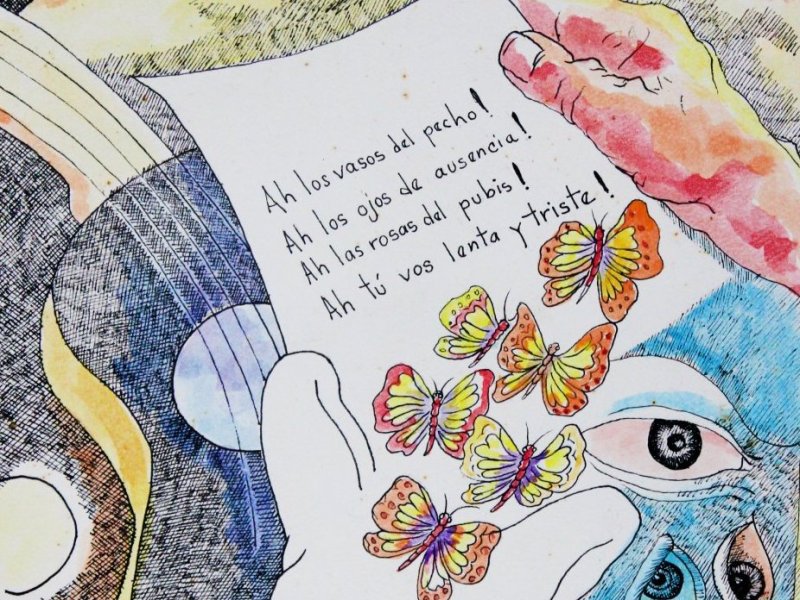 Ah los vasos del pecho!
Ah los ojos de ausencia!
Ah las rosas del pubis!
Ah tú vos lenta y triste!